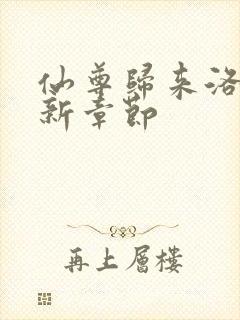 仙尊歸来洛
新章節
再上層樓